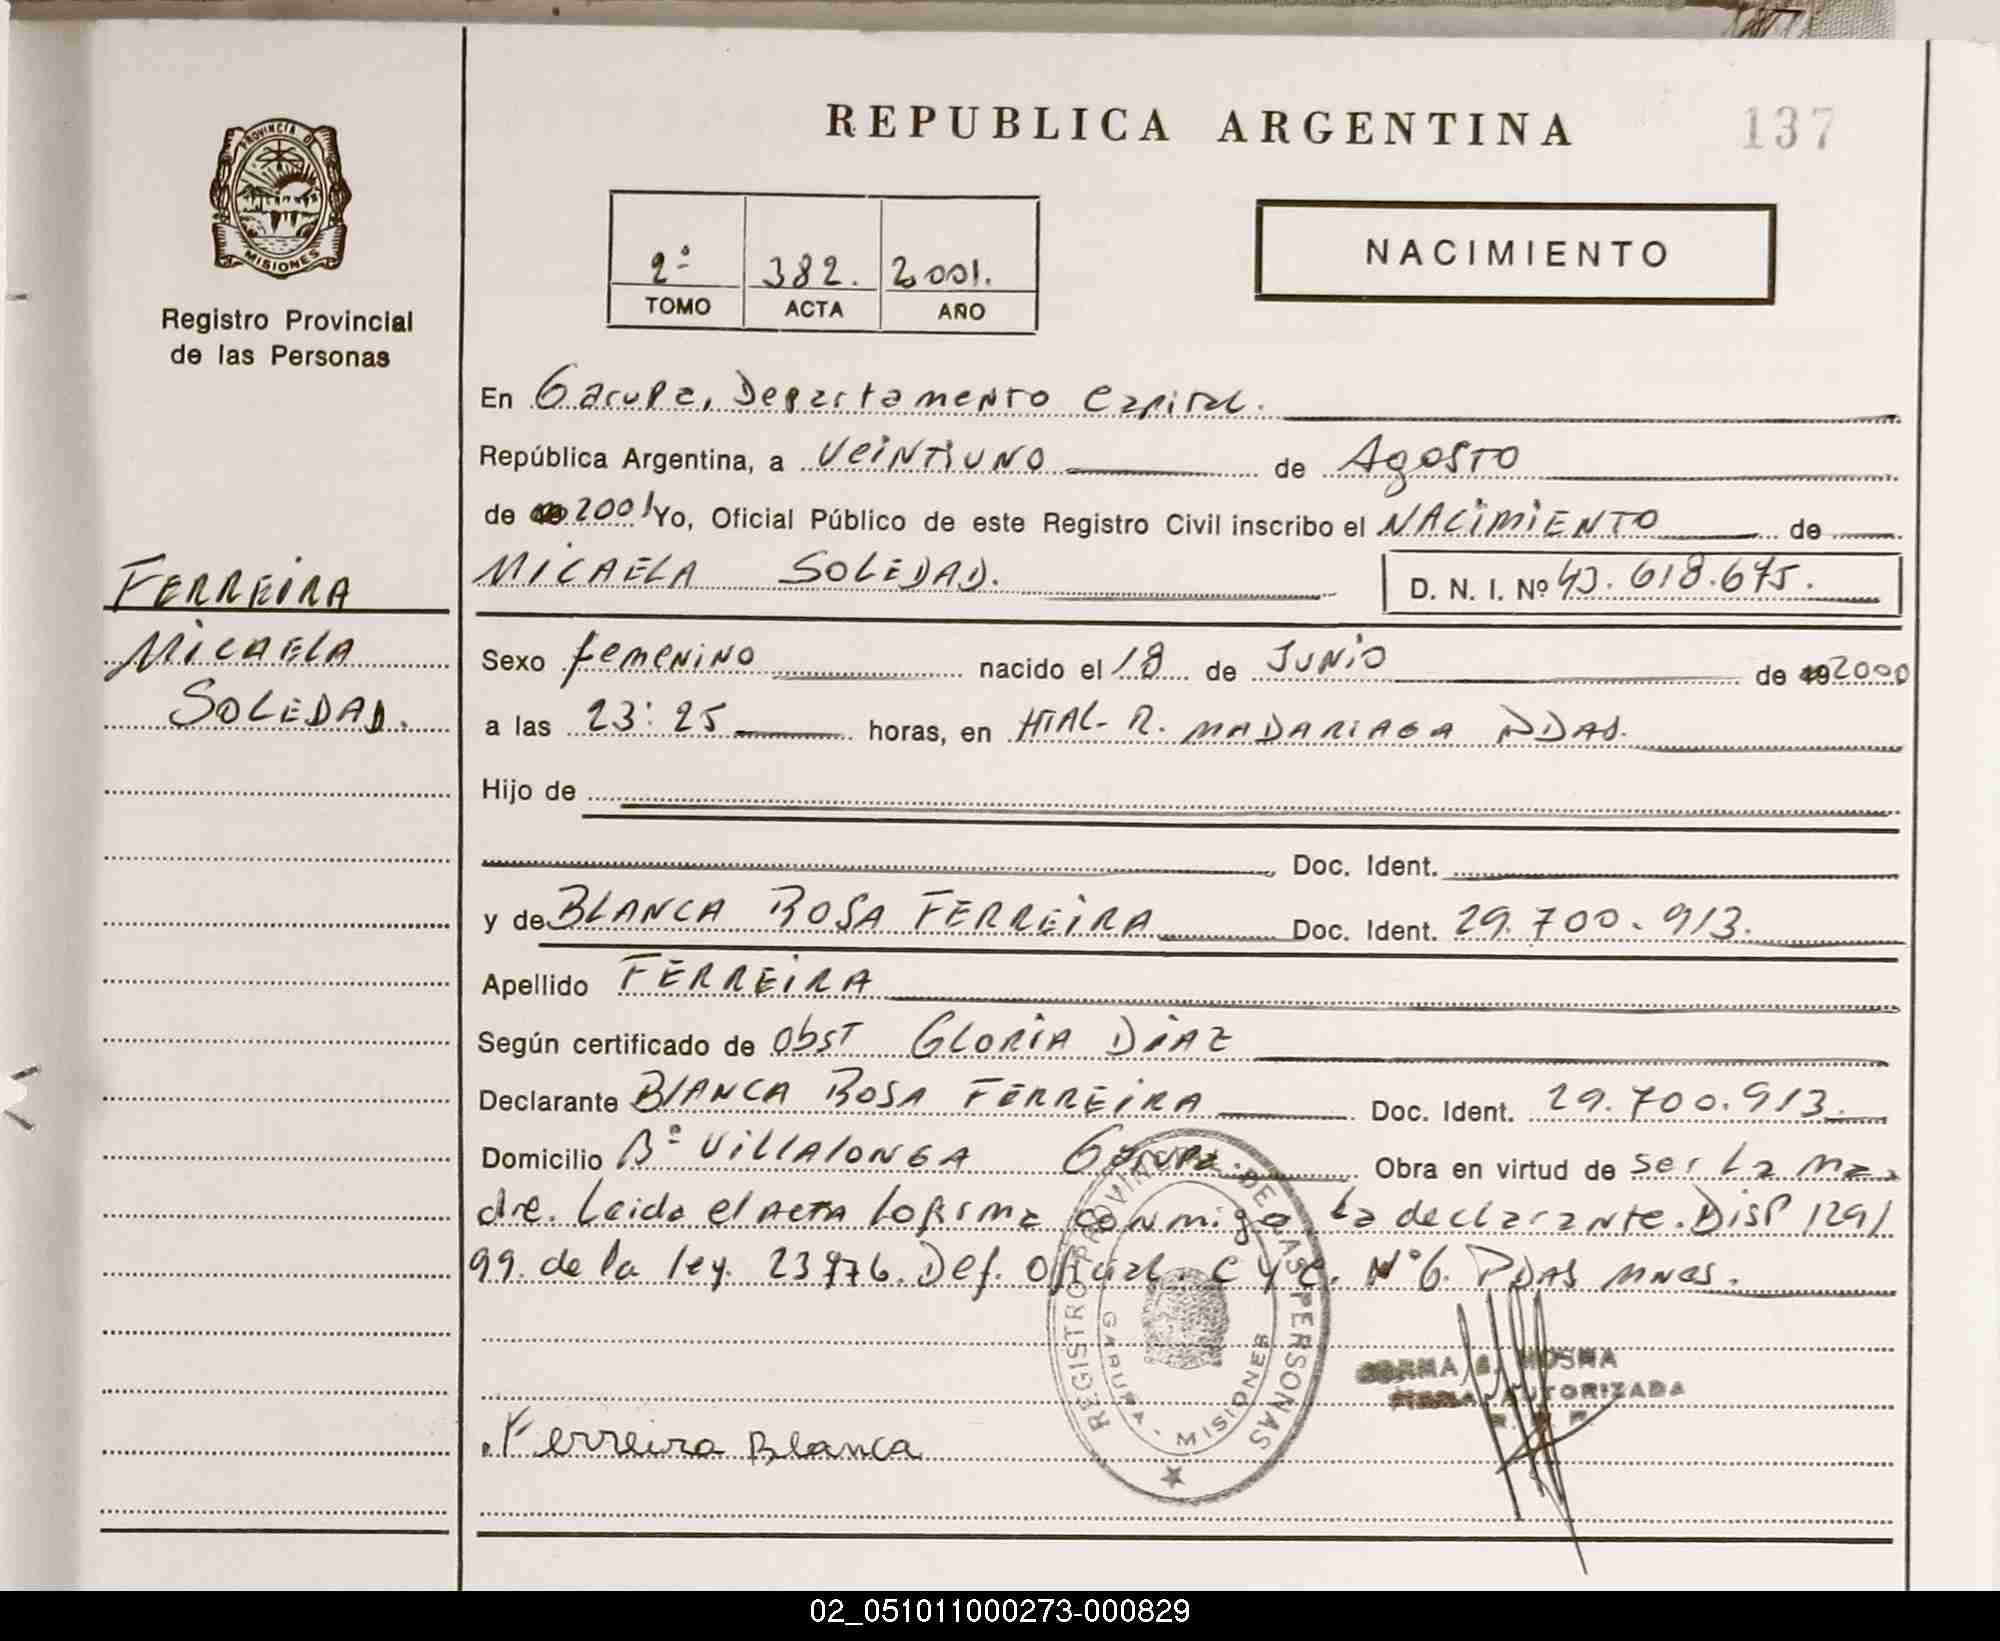 REPUBLICA ARGENTINA
137
PROVINCIA D
MISIONES
Registro Provincial
de las Personas
2º 382. 2001.
TOMO ACTA AÑO
NACIMIENTO
En Garupa, Departamento Capital.
República Argentina, a veintiuno de Agosto
de 2001 Yo, Oficial Público de este Registro Civil inscribo el NACIMIENTO de
FERREIRA
MICAELA
SOLEDAD.
MICAELA SOLEDAD. D. N. I. Nº 43.618.675.
Sexo femenino nacido el 18 de Junio de 192000
a las 23:25 horas, en HTAL- R. MADARIAGA PDAS.
Hijo de
Doc. Ident.
y de BLANCA ROSA FERREIRA Doc. Ident. 29.700.913.
Apellido FERREIRA
Según certificado de Obst GLORIA DIAZ
Declarante BLANCA ROSA FERREIRA Doc. Ident. 29.700.913.
Domicilio Bº VILLALONGA Garupa. Obra en virtud de ser La ma
dre. Leida el acta lo firma conmigo la declarante. Disp 1291
99. de la ley. 23776. Def. Oficial. C y C. Nº 6. PDAS MNES.
REGISTRO PROVINCIAL DE LAS PERSONAS
GARUPA - MISIONES
NORMA MOSNA
FIRMA AUTORIZADA
Ferreira Blanca
02_051011000273-000829